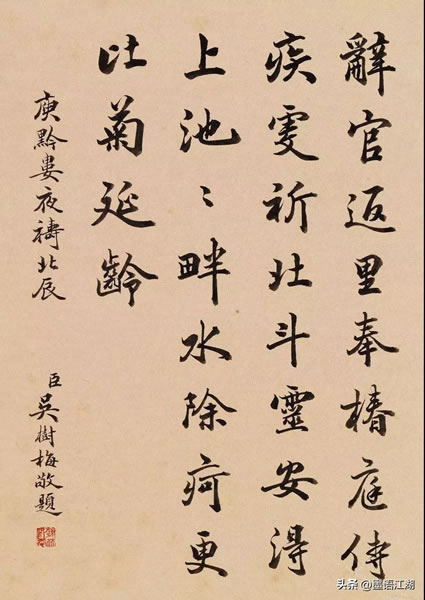 辭官返里奉椿庭侍
疾虔祈北斗靈安得
上池〻畔水除疴更
比菊延齡
庾黔婁夜禱北辰
臣吳樹梅敬題
头条 @语江湖